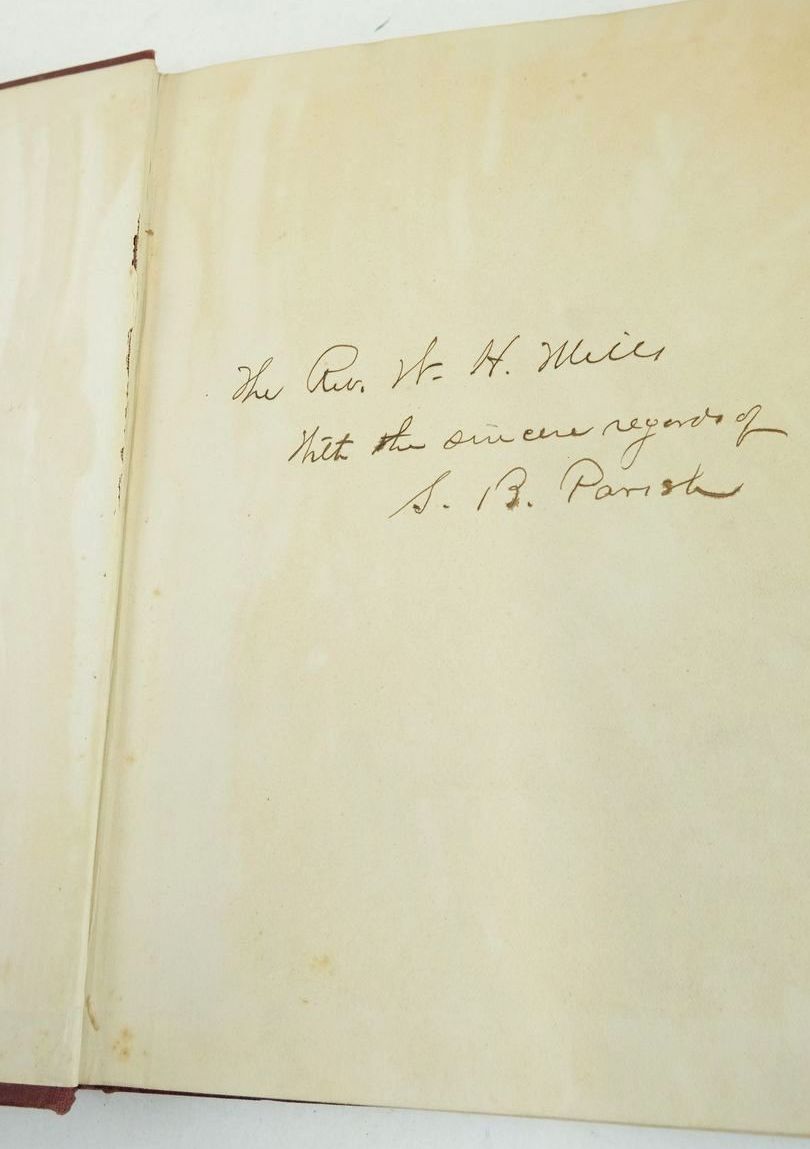 The Rev. W. H. Mills
With the sincere regards of
S. B. Parish